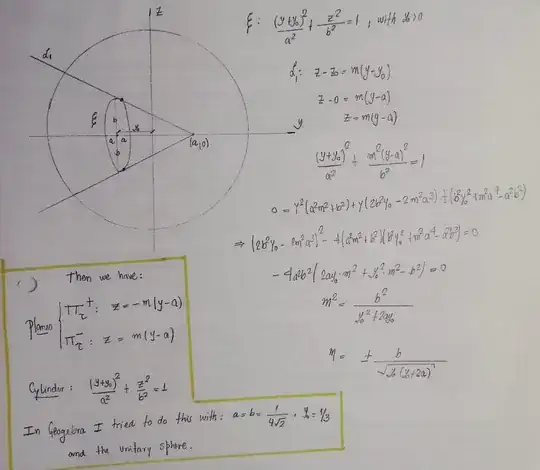 Z
L₁
ξ
b
a a
b
y₀
(a,0)
y
ξ: (y+y₀)²/a² + z²/b² = 1, with y₀>0
L₁: z-z₀ = m(y-y₀)
z-0 = m(y-a)
z = m(y-a)
(y+y₀)²/a² + m²(y-a)²/b² = 1
0 = y²(a²m²+b²) + y(2b²y₀ - 2m²a³) + (b²y₀² + m²a⁴ - a²b²)
⇒ (2b²y₀ - 2m²a³)² - 4(a²m²+b²)(b²y₀² + m²a⁴ - a²b²) = 0
- 4a²b²(2ay₀·m² + y₀²·m² - b²) = 0
m² = b²/(y₀²+2ay₀)
m = ± b/√(y₀(y₀+2a))
Then we have:
Planes { Π⁺τ: z = -m(y-a)
Π⁻τ: z = m(y-a)
Cylinder: (y+y₀)²/a² + z²/b² = 1
In Geogebra I tried to do this with: a = b = 1/(4√2), y₀ = 1/3
and the unitary sphere.